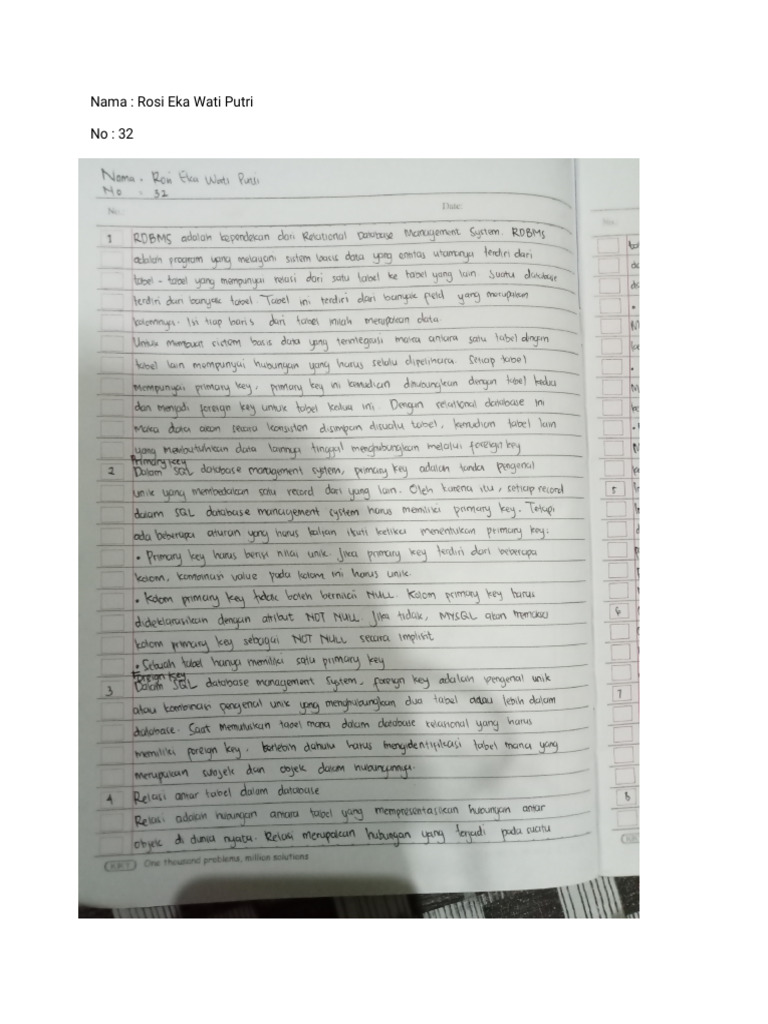 Nama : Rosi Eka Wati Putri
No : 32
Nama . Rosi Eka Wati Putri
No : 32
No :
Date:
1 RDBMS adalah kependekan dari Relational Database Management System. RDBMS
adalah program yang melayani sistem basis data yang entitas utamanya terdiri dari
tabel - tabel yang mempunyai relasi dari satu tabel ke tabel yang lain. Suatu database
terdiri dari banyak tabel Tabel ini terdiri dari banyak field yang merupakan
kolomnya. Isi tiap baris dari tabel inilah merupakan data.
Untuk membuat sistem basis data yang terintegrasi maka antara satu tabel dengan
tabel lain mempunyai hubungan yang harus selalu dipelihara. Setiap tabel
mempunyai primary key, primary key ini kemudian dihubungkan dengan tabel kedua
dan menjadi foreign key untuk tabel kedua ini. Dengan relational database ini
maka data akan secara konsisten disimpan disuatu tabel, kemudian tabel lain
yang membutuhkan data lainnya tinggal menghubungkan melalui foreign key
Primary key
2 Dalam SQL database management system, primary key adalah tanda pengenal
unik yang membedakan satu record dari yang lain. Oleh karena itu, setiap record
dalam SQL database management system harus memiliki primary key. Tetapi
ada beberapa aturan yang harus kalian ikuti ketika menentukan primary key:
• Primary key harus berisi nilai unik. Jika primary key terdiri dari beberapa
kolom, kombinasi value pada kolom ini harus unik.
• Kolom primary key tidak boleh bernilai NULL. Kolom primary key harus
dideklarasikan dengan atribut NOT NULL. Jika tidak, MySQL akan
kolom primary key sebagai NOT NULL secara implisit
• Sebuah tabel hanya memiliki satu primary key
Foreign Key
3 Dalam SQL database management system, foreign key adalah pengenal unik
atau kombinasi pengenal unik yang menghubungkan dua tabel atau lebih dalam
database. Saat memutuskan tabel mana dalam database relasional yang harus
memiliki foreign key, terlebih dahulu harus mengidentifikasi tabel mana yang
merupakan subjek dan objek dalam hubungannya.
4 Relasi antar tabel dalam database
Relasi adalah hubungan antara tabel yang mempresentasikan hubungan antar
objek di dunia nyata. Relasi merupakan hubungan yang terjadi pada suatu
One thousand problems, million solutions
No :
5
6
7
8